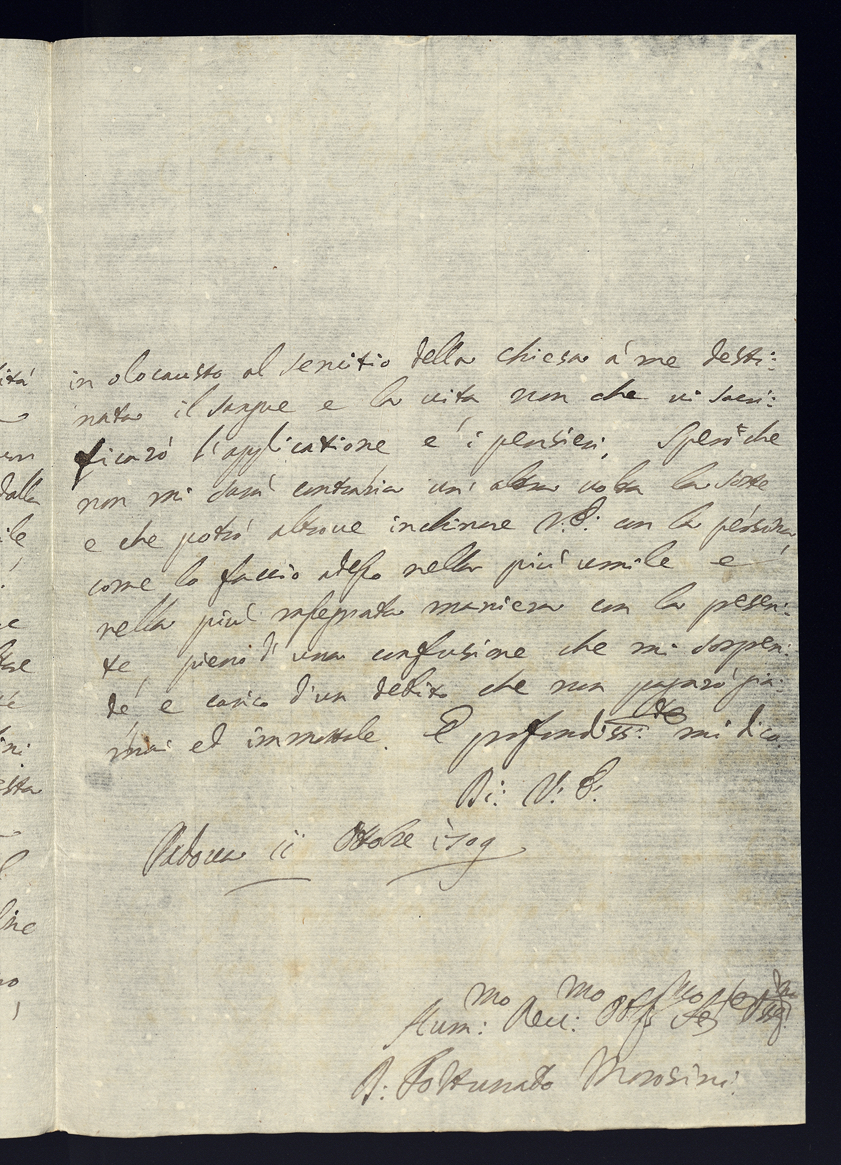 in olocausto al servitio della chiesa a' me desti:
nata il sangue e la vita non che vi sacri:
ficarò l'applicatione e' i pensieri. Spero che
non mi sarà contraria un' altra volta la sorte
e che potrò altrove inchinare V: E: con la persona,
come lo faccio adesso nella più umile e
nella più rassegnata maniera con la presen:
te, pieno di una confusione che mi sorpen:
de, e carico d'un debito che non pagarò gia:
mai ed immortale. E profondiss: mi dico.
Di: V: E:
Padova ii Ottobre i709
Hum: mo Deu: mo
D: Fortunato Morosini
ità
dalla
ile
sta